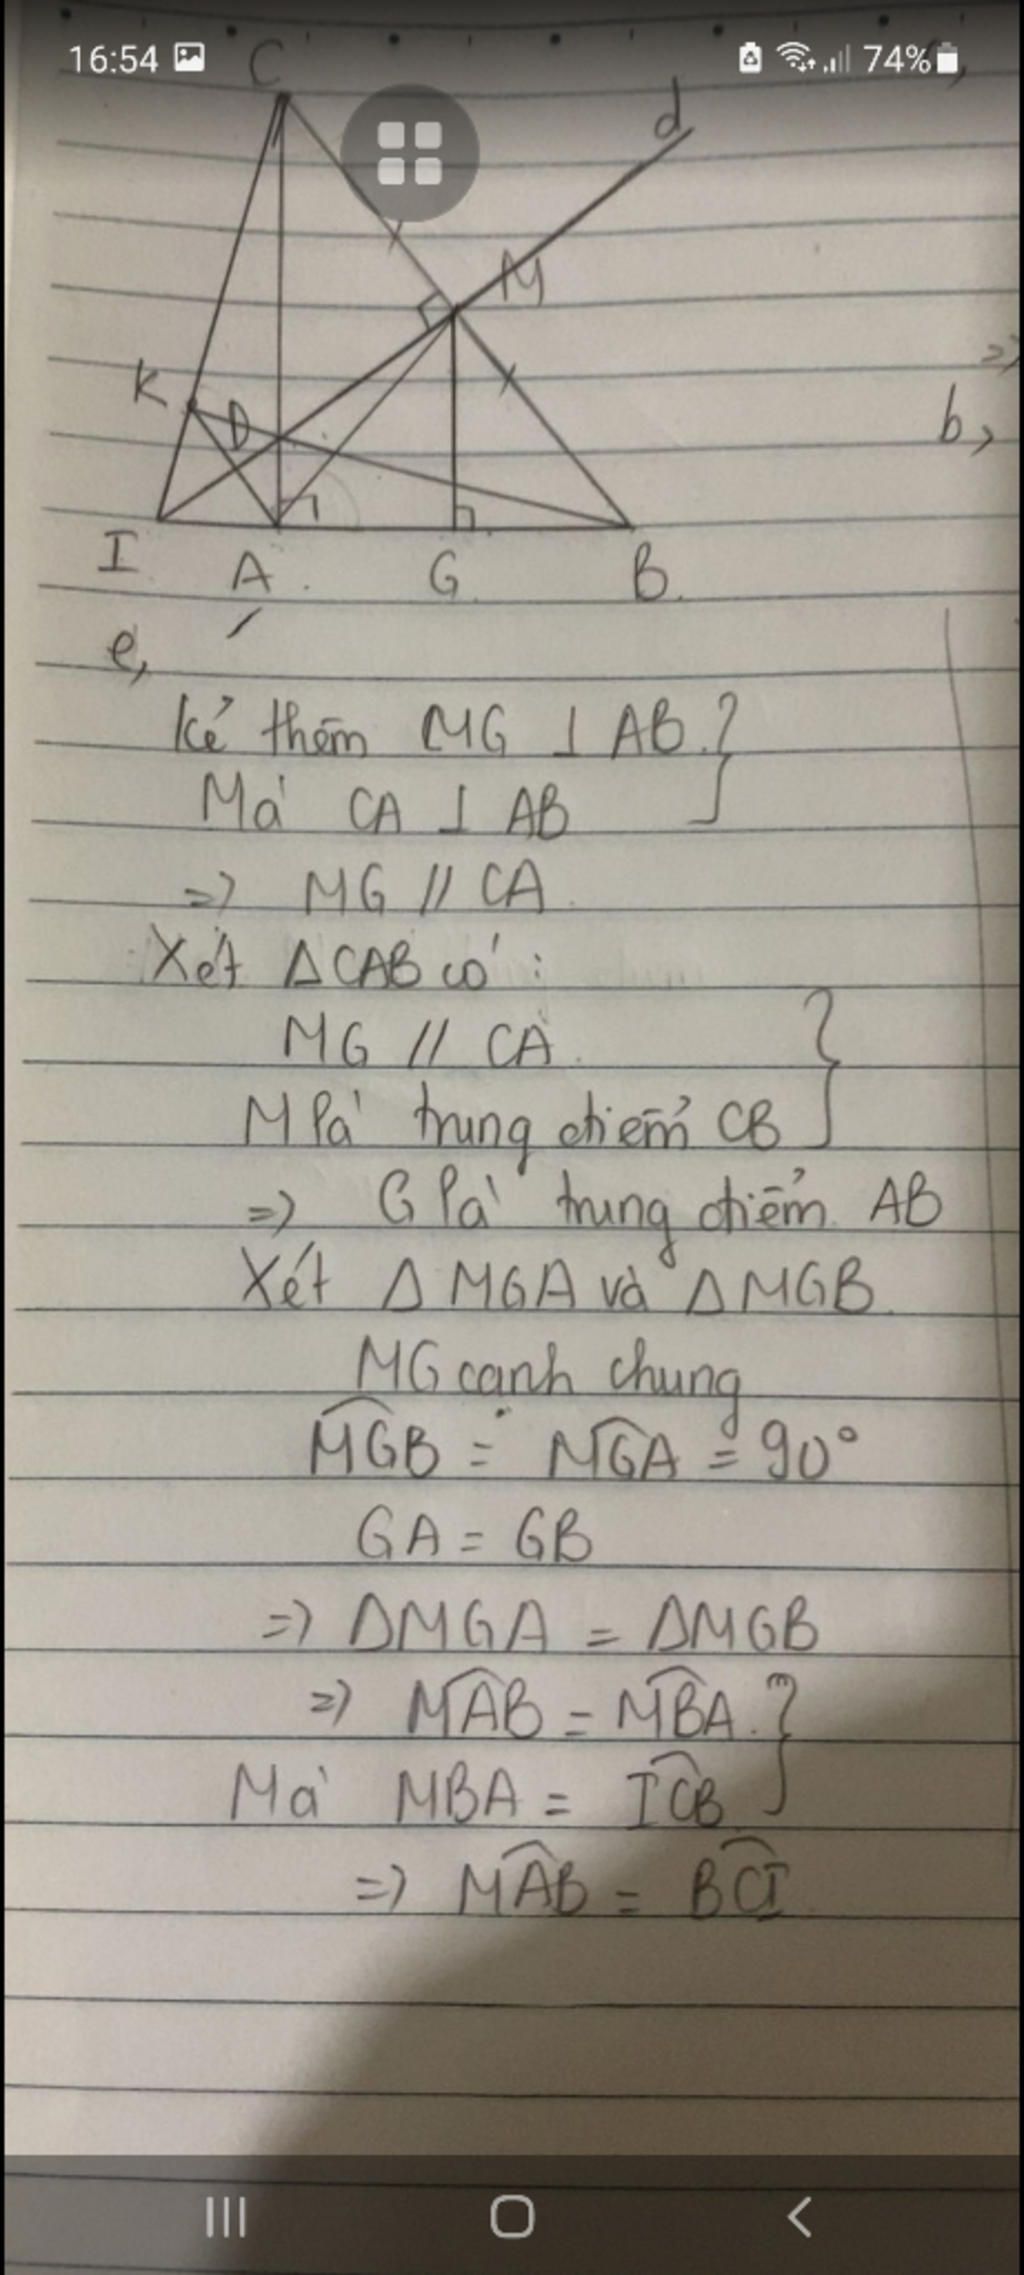 16:54
74%
C
d
M
K
D
b,
I
A
G
B
e,
Kẻ thêm MG ⊥ AB
Mà CA ⊥ AB
=> MG // CA
Xét ΔCAB có :
MG // CA
M là trung điểm CB
=> G là trung điểm AB
Xét Δ MGA và Δ MGB
MG cạnh chung
MGB = MGA = 90°
GA = GB
=> ΔMGA = ΔMGB
=> MAB = MBA
Mà MBA = ICB
=> MAB = BCI